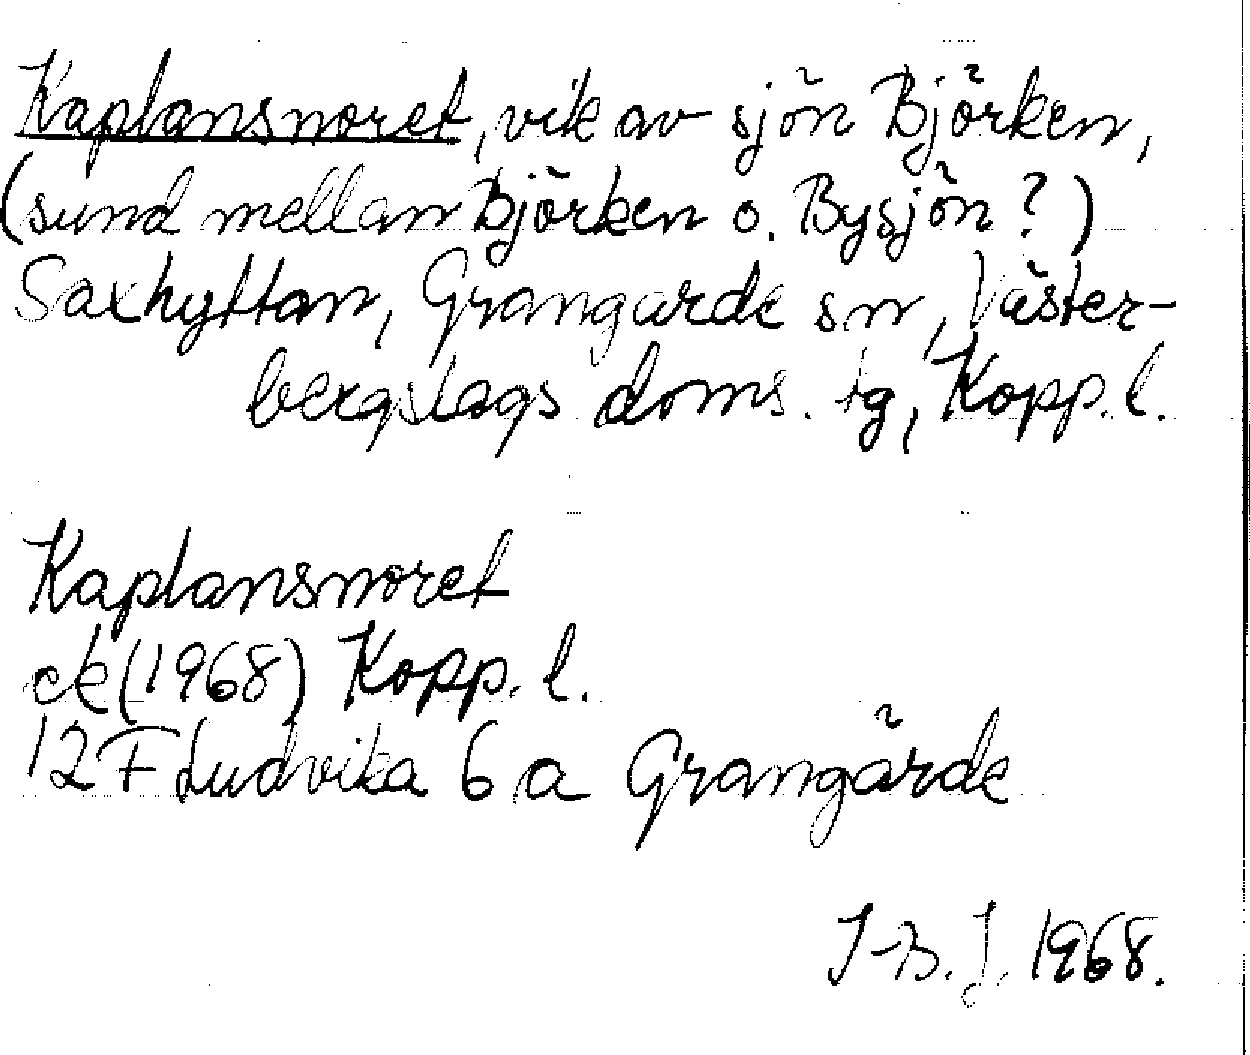 Kaplansnoret, vik av sjön Björken,
(sund mellan Björken o. Bysjön?)
Saxhyttan, Grangarde sn, Väster-
bergslags doms. tg, Kopp. l.
Kaplansnoret
ek (1968) Kopp. l.
12 F Ludvika 6 a Grangärde
I-B. J. 1968.